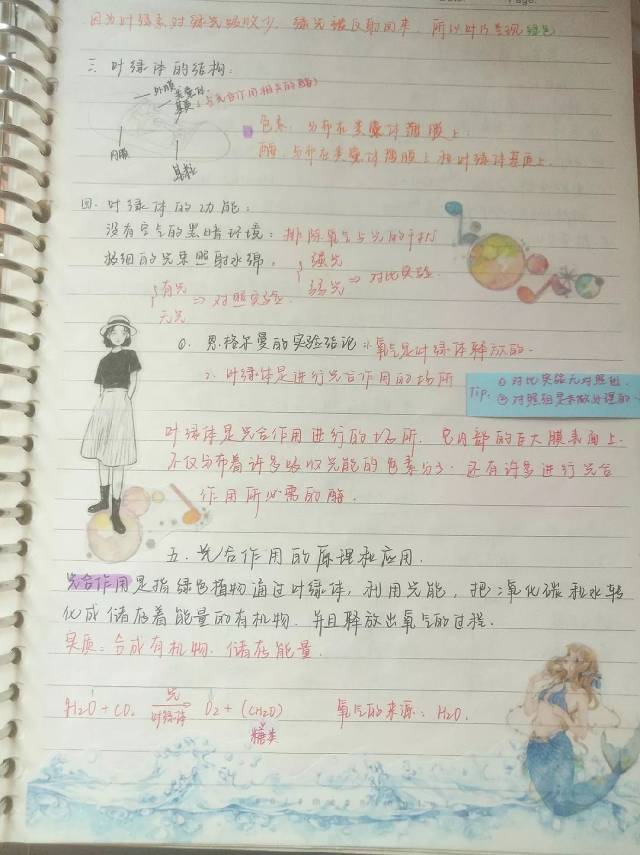 因为叶绿素对绿光吸收少，绿光被反射回来，所以叶片呈现绿色
三、叶绿体的结构：
外膜
类囊体
基质（与光合作用相关的酶）
内膜
基粒
色素：分布在类囊体薄膜上.
酶：分布在类囊体薄膜上和叶绿体基质上.
四. 叶绿体的功能：
没有空气的黑暗环境：排除氧气与光的干扰
极细的光束照射水绵.
强光
弱光 ⇒ 对比实验.
有光
无光 ⇒ 对照实验.
恩格尔曼的实验结论：氧气是叶绿体释放的.
2. 叶绿体是进行光合作用的场所
Tip: ① 对比实验无对照组.
② 对照组是未做处理的.
叶绿体是光合作用进行的场所. 它内部的巨大膜表面上.
不仅分布着许多吸收光能的色素分子. 还有许多进行光合
作用所必需的酶.
五. 光合作用的原理和应用.
光合作用是指绿色植物通过叶绿体，利用光能，把二氧化碳和水转
化成储存着能量的有机物. 并且释放出氧气的过程.
实质：合成有机物. 储存能量.
H2O + CO2 光 叶绿体 → O2 + (CH2O) 氧气的来源：H2O.
糖类